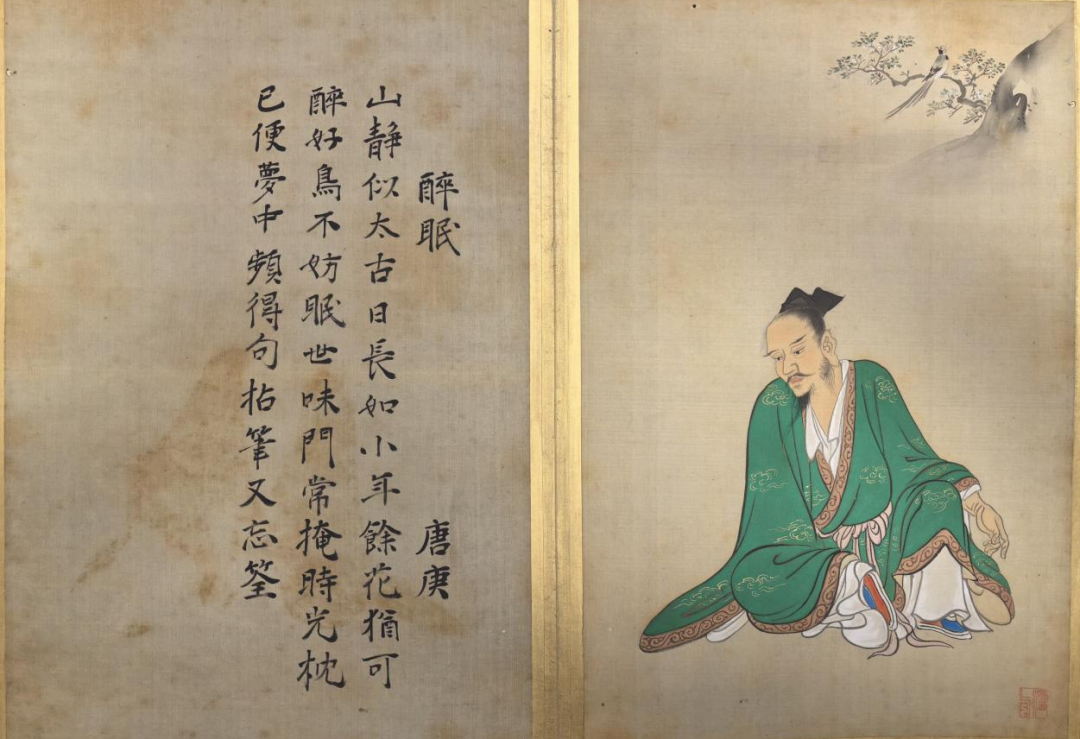 醉眠 唐庚
山静似太古日長如小年餘花猶可
醉好鳥不妨眠世味門常掩時光枕
已便夢中頻得句拈筆又忘筌